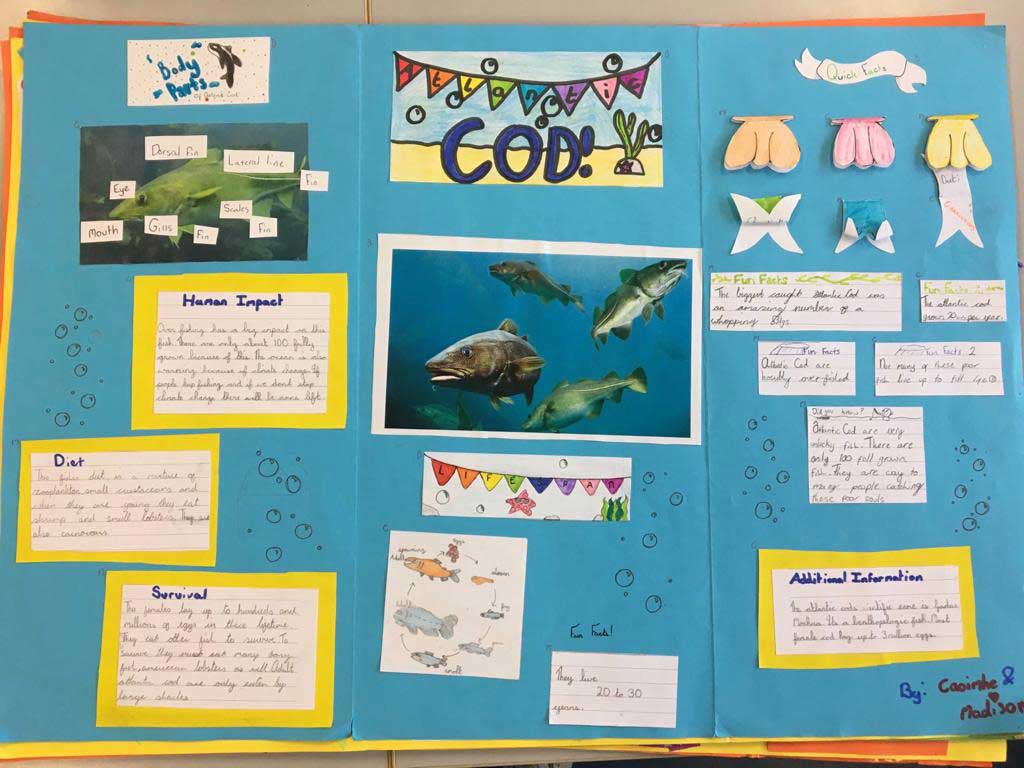 Body
Parts
Of Atlantic Cod
Dorsal Fin
Lateral line
Fin
Eye
Scales
Mouth
Gills
Fin
Fin
Human Impact
Over fishing has a big impact on this
fish. There are only about 100 fully
grown because of this. The ocean is also
warming because of climate change. If
people keep fishing and if we dont stop
climate change there will be none left.
Diet
This fishs diet is a mixture of
zooplankton, small crustaceans and
when they are young they eat
shrimp and small lobsters. They are
also carnivorous.
Survival
The females lay up to hundreds and
millions of eggs in there lifetime.
They eat other fish to survive. To
survive they must eat many bony
fish, american lobsters as well. Adult
atlantic cod are only eaten by
large sharks
Atlantic
COD!
LIFESPAN
eggs
spawning
Adult
alevin
fry
smolt
Fun Facts!
They live
20 to 30
years.
Quick Facts
Diet:
Fun Facts
The biggest caught Atlantic Cod was
an amazing number of a
whopping
Fun Facts
The atlantic cod
grown per year.
Fun Facts
Atlantic Cod are
heavily over-fished
Fun Facts 2
Not many of these poor
fish live up to till 40
Did you know?
Atlantic Cod are very
unlucky fish. There are
only 100 full grown
fish. They are
many people catching
these poor souls
Additional Information
The atlantic cods name is Gadus
Morhua. Its a benthopelagic fish. Most
female cod lay up to 3 million eggs.
By: Caoimhe &
Madison